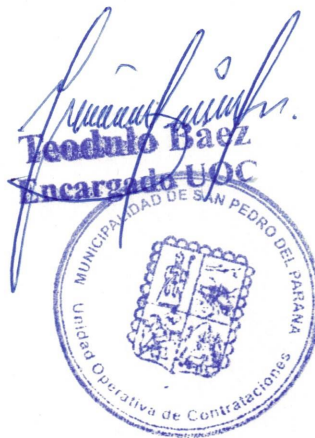 Teodulo Baez
Encargado UOC
MUNICIPALIDAD DE SAN PEDRO DEL PARANA
Unidad Operativa de Contrataciones